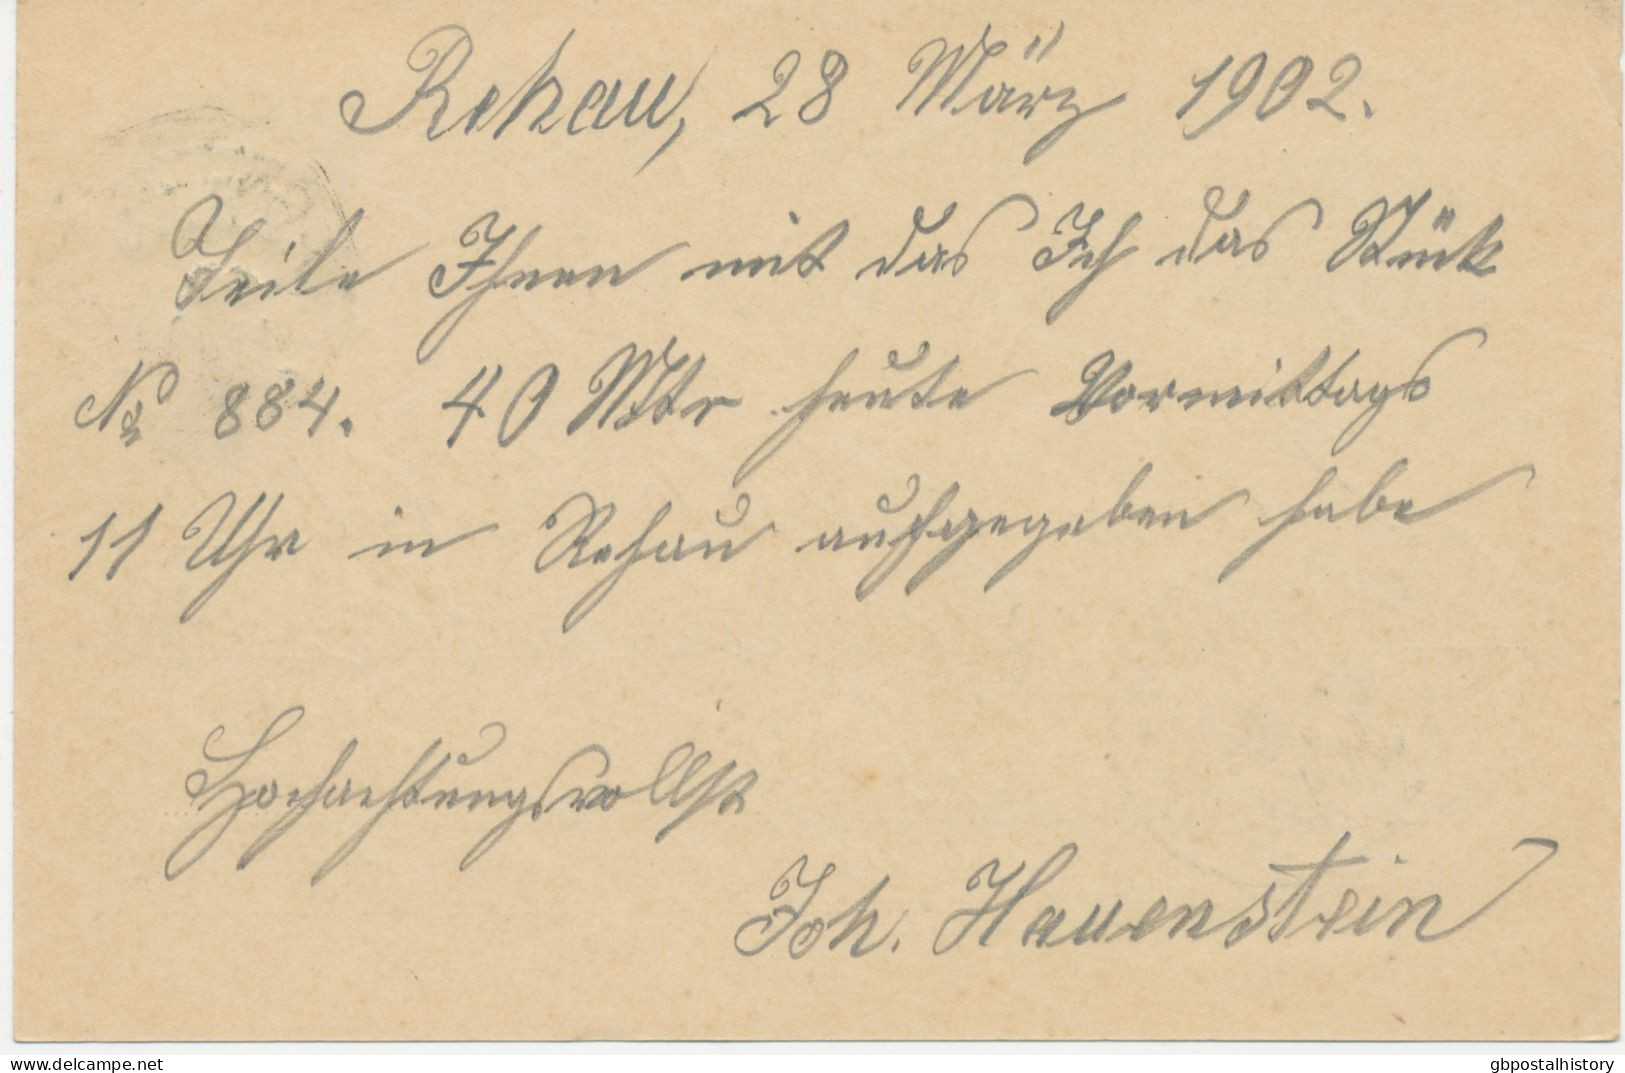 Rehau, 28 März 1902.
Teile Ihnen mit das Ich das Stück
No 884. 40 Mtr heute Vormittags
11 Uhr in Rehau aufgegeben habe
Hochachtungsvollst
Joh. Hauenstein
delcampe.net
gbpostalhistory